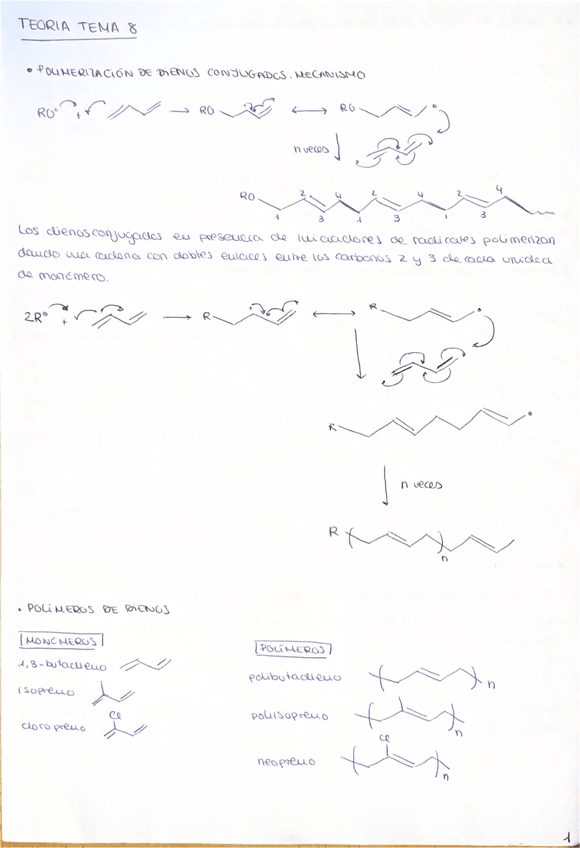 TEORIA TEMA 8
• POLIMERIZACIÓN DE DIENOS CONJUGADOS. MECANISMO
RO° + → RO ↔ RO
n veces
RO 1 2 3 4 1 2 3 4 1 2 3 4
Los dienos conjugados en presencia de iniciadores de radicales polimerizan
dando una cadena con dobles enlaces entre los carbonos 2 y 3 de cada unidad
de monómero.
2R° + → R ↔ R
R
n veces
R n
• POLÍMEROS DE DIENOS
MONÓMEROS
POLÍMEROS
1,3-butadieno
polibutadieno n
isopreno
poliisopreno n
Cl
cloropreno
Cl
neopreno n
1